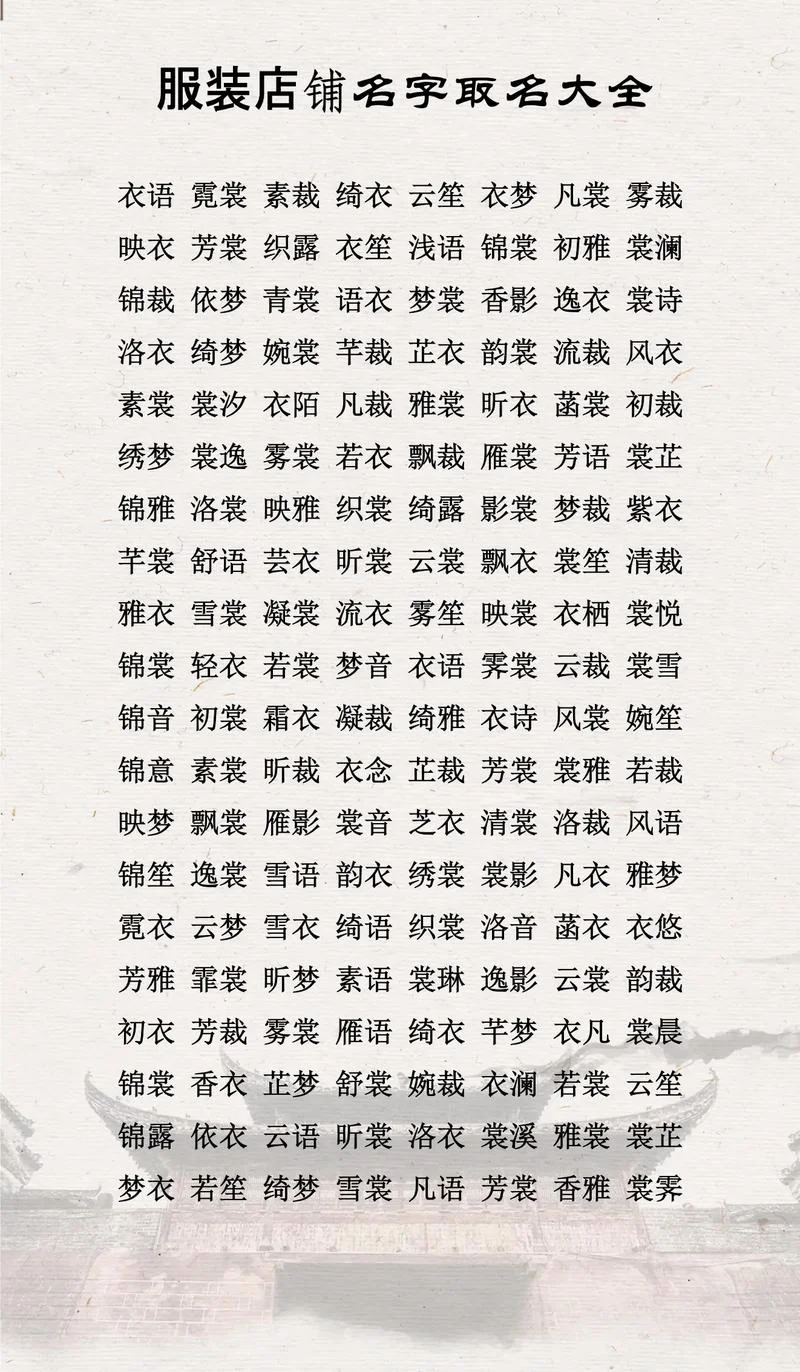 服装店铺名字取名大全
衣语 霓裳 素裁 绮衣 云笙 衣梦 凡裳 雾裁
映衣 芳裳 织露 衣笙 浅语 锦裳 初雅 裳澜
锦裁 依梦 青裳 语衣 梦裳 香影 逸衣 裳诗
洛衣 绮梦 婉裳 芊裁 芷衣 韵裳 流裁 风衣
素裳 裳汐 衣陌 凡裁 雅裳 昕衣 菡裳 初裁
绣梦 裳逸 雾裳 若衣 飘裁 雁裳 芳语 裳芷
锦雅 洛裳 映雅 织裳 绮露 影裳 梦裁 紫衣
芊裳 舒语 芸衣 昕裳 云裳 飘衣 裳笙 清裁
雅衣 雪裳 凝裳 流衣 雾笙 映裳 衣栖 裳悦
锦裳 轻衣 若裳 梦音 衣语 霁裳 云裁 裳雪
锦音 初裳 霜衣 凝裁 绮雅 衣诗 风裳 婉笙
锦意 素裳 昕裁 衣念 芷裁 芳裳 裳雅 若裁
映梦 飘裳 雁影 裳音 芝衣 清裳 洛裁 风语
锦笙 逸裳 雪语 韵衣 绣裳 裳影 凡衣 雅梦
霓衣 云梦 雪衣 绮语 织裳 洛音 菡衣 衣悠
芳雅 霏裳 昕梦 素语 裳琳 逸影 云裳 韵裁
初衣 芳裁 雾裳 雁语 绮衣 芊梦 衣凡 裳晨
锦裳 香衣 芷梦 舒裳 婉裁 衣澜 若裳 云笙
锦露 依衣 云语 昕裳 洛衣 裳溪 雅裳 裳芷
梦衣 若笙 绮梦 雪裳 凡语 芳裳 香雅 裳霁